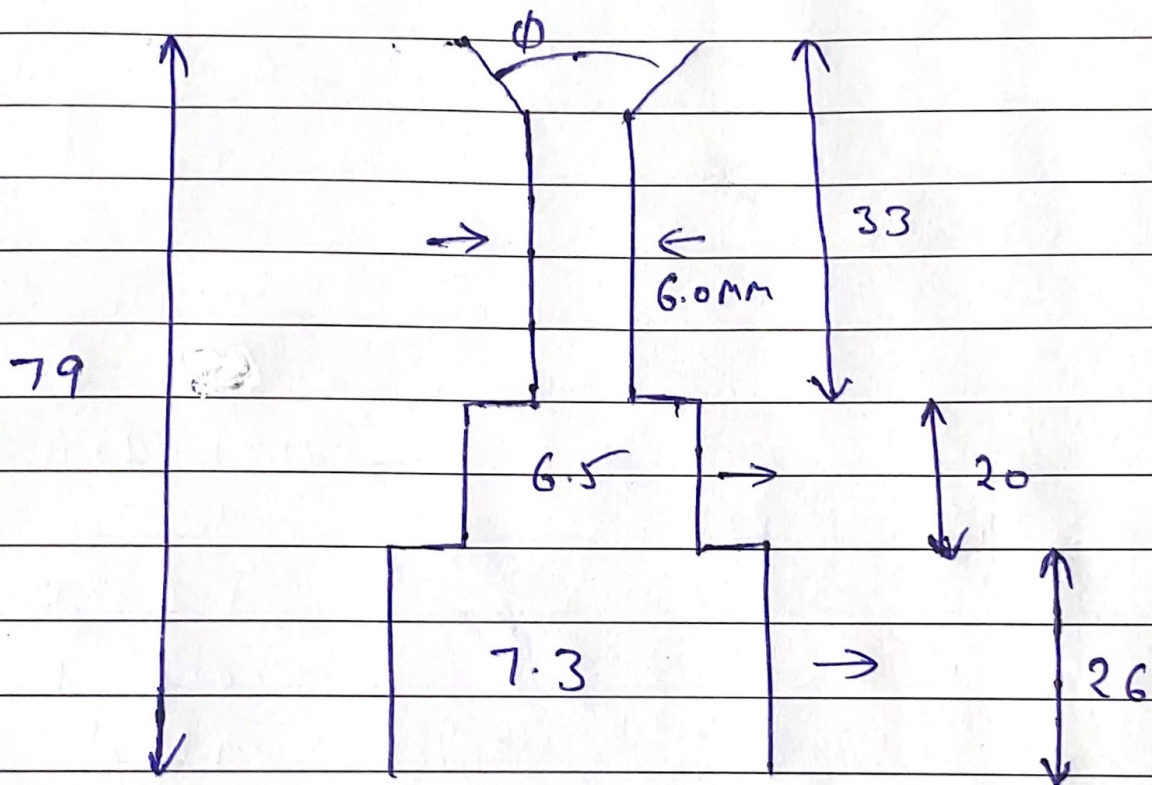 ϕ
33
6.0MM
79
6.5
20
7.3
26